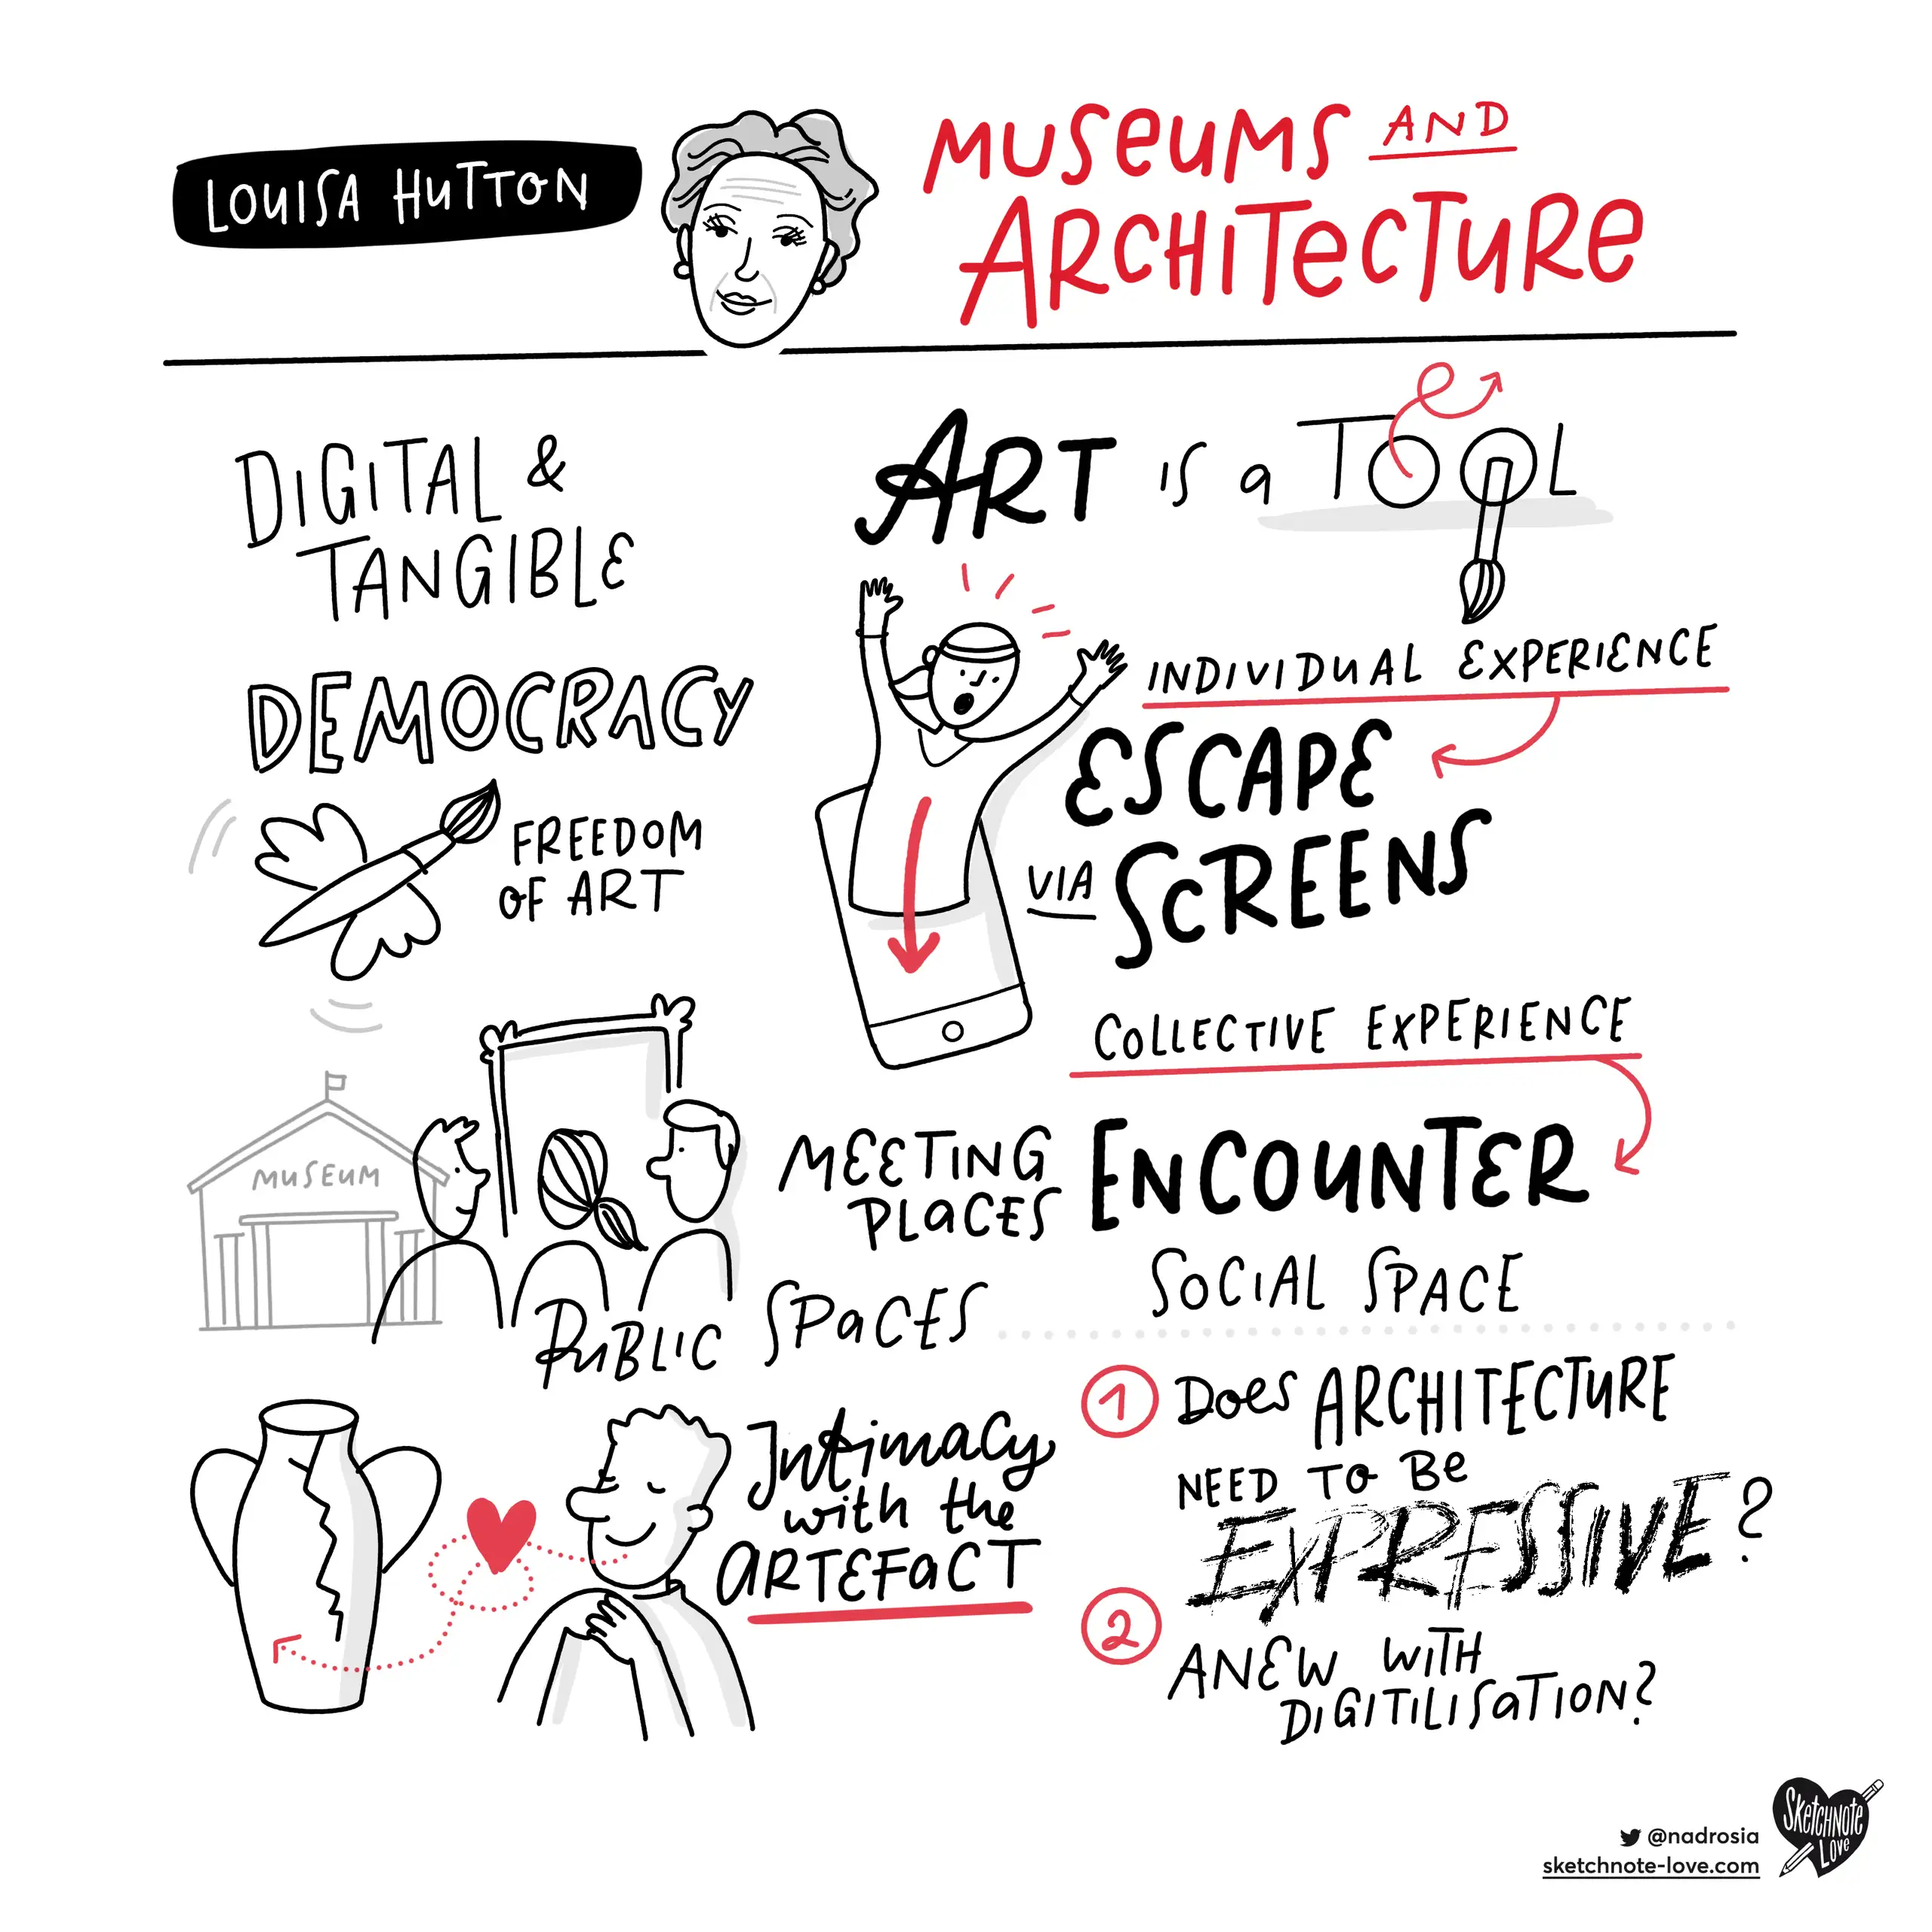 LOUISA HUTTON
MUSEUMS AND
ARCHITECTURE
DIGITAL &
TANGIBLE
DEMOCRACY
FREEDOM
OF ART
MUSEUM
MEETING
PLACES
PUBLIC SPACES
Intimacy
with the
ARTEFACT
ART IS a TOOL
INDIVIDUAL EXPERIENCE
ESCAPE
VIA SCREENS
COLLECTIVE EXPERIENCE
ENCOUNTER
SOCIAL SPACE
1 Does ARCHITECTURE
NEED TO Be
EXPRESSIVE?
2
ANEW WITH
DIGITILISATION?
@nadrosia
sketchnote-love.com
SKETCHNOTE
LOVE